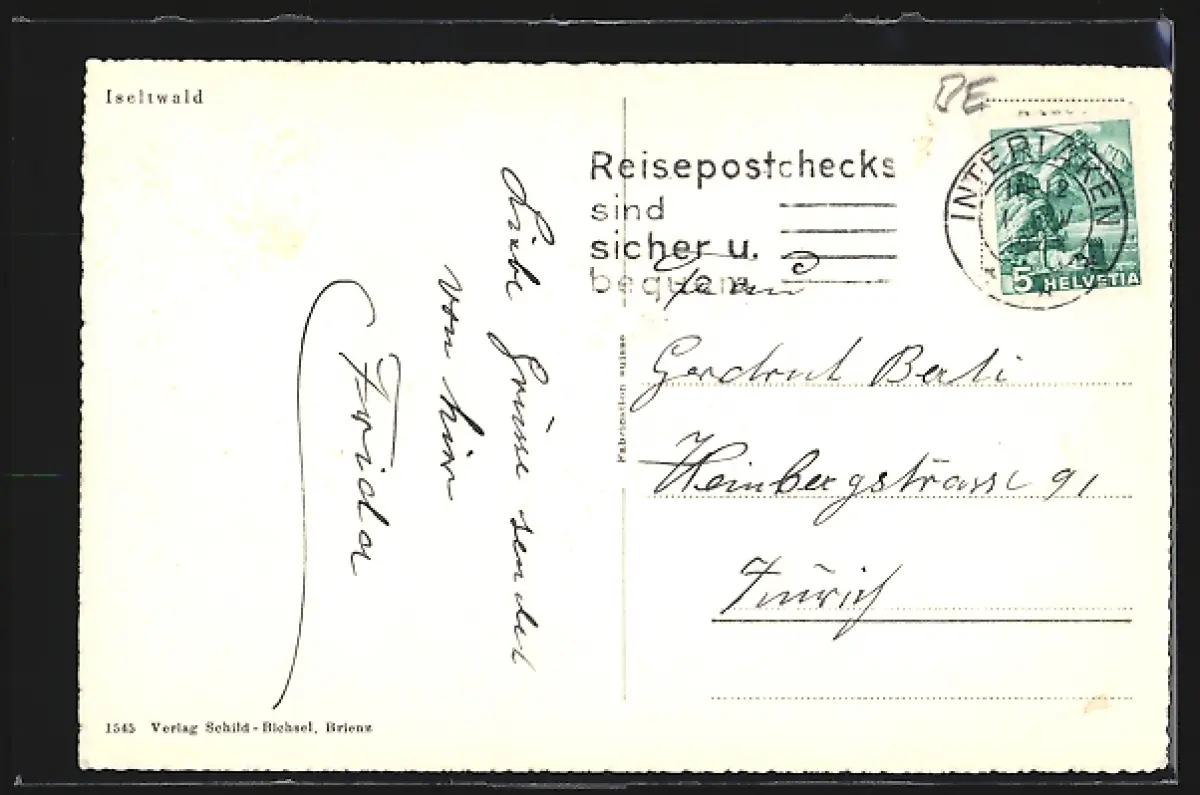 Iseltwald
BE
Reisepostchecks
sind
sicher u.
bequem
INTERLAKEN
5 HELVETIA
Liebe Grüsse sendet
von hier
Frieda
Fabrication suisse
Gertrud Berli
Weinbergstrasse 91
Zürich
1545 Verlag Schild-Bichsel, Brienz